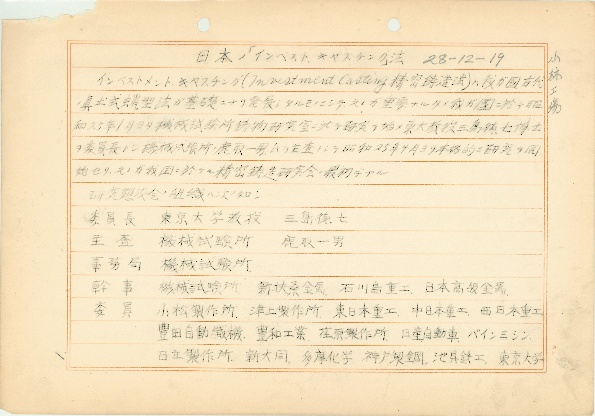 日本ノインベストキャスチング法 28-12-19
小林工場
インベストメントキャスチング(Investment Casting 精密鋳造法)ハ我が国古代
ノ鼻土式蝋型法ガ基礎トナリ発展シタルモノニシテ 我ガ国ニ於テ昭
和25年1月 機械試験所鋳物研究室ニ於テ研究ヲ始メ東大教授三島徳七博士
ヲ委員長トシ機械試験所 鹿取一男 主査トシテ昭和25年9月 本格的ニ研究ヲ開
始セリ 我国ニ於ケル精密鋳造研究会ノ最初デアル
研究懇談会ノ組織ハ次ノ如シ
委員長 東京大学教授 三島徳七
主査 機械試験所 鹿取一男
事務局 機械試験所
幹事 機械試験所 新扶桑金属 石川島重工 日本高級金属
委員 小松製作所 津上製作所 東日本重工 中日本重工 西日本重工
豊田自動織機 豊和工業 荏原製作所 日産自動車 パインミシン
日立製作所 新大同 多摩化学 神戸製鋼 池貝鉄工 東京大学